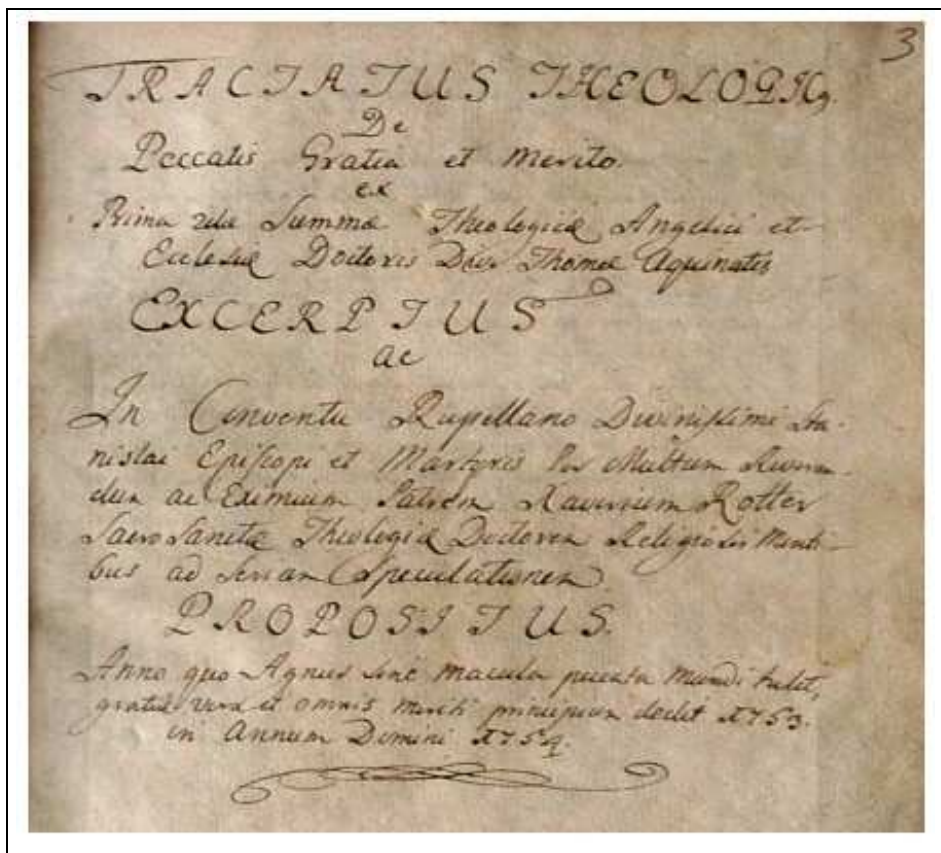 3
TRACTATUS THEOLOGICUS
De
Peccatis Gratia et Merito.
ex
Prima 2dæ Summæ Theologicæ Angelici et
Ecclesiæ Doctoris Divi Thomæ Aquinatis
EXCERPTUS
ac
In Conventu Rupellano Divinissimi Sta-
nislai Episcopi et Martyris Per Multum Reveren
dum ac Eximium Patrem Xaverium Rotter
SacroSanctæ Theologiæ Doctorem Religiosis Menti-
bus ad Seriam Speculationem
PROPOSITUS.
Anno quo Agnus sine macula peccata mundi tulit,
gratiæ vera et omnis meriti principium dedit 1753.
in Annum Domini 1754.